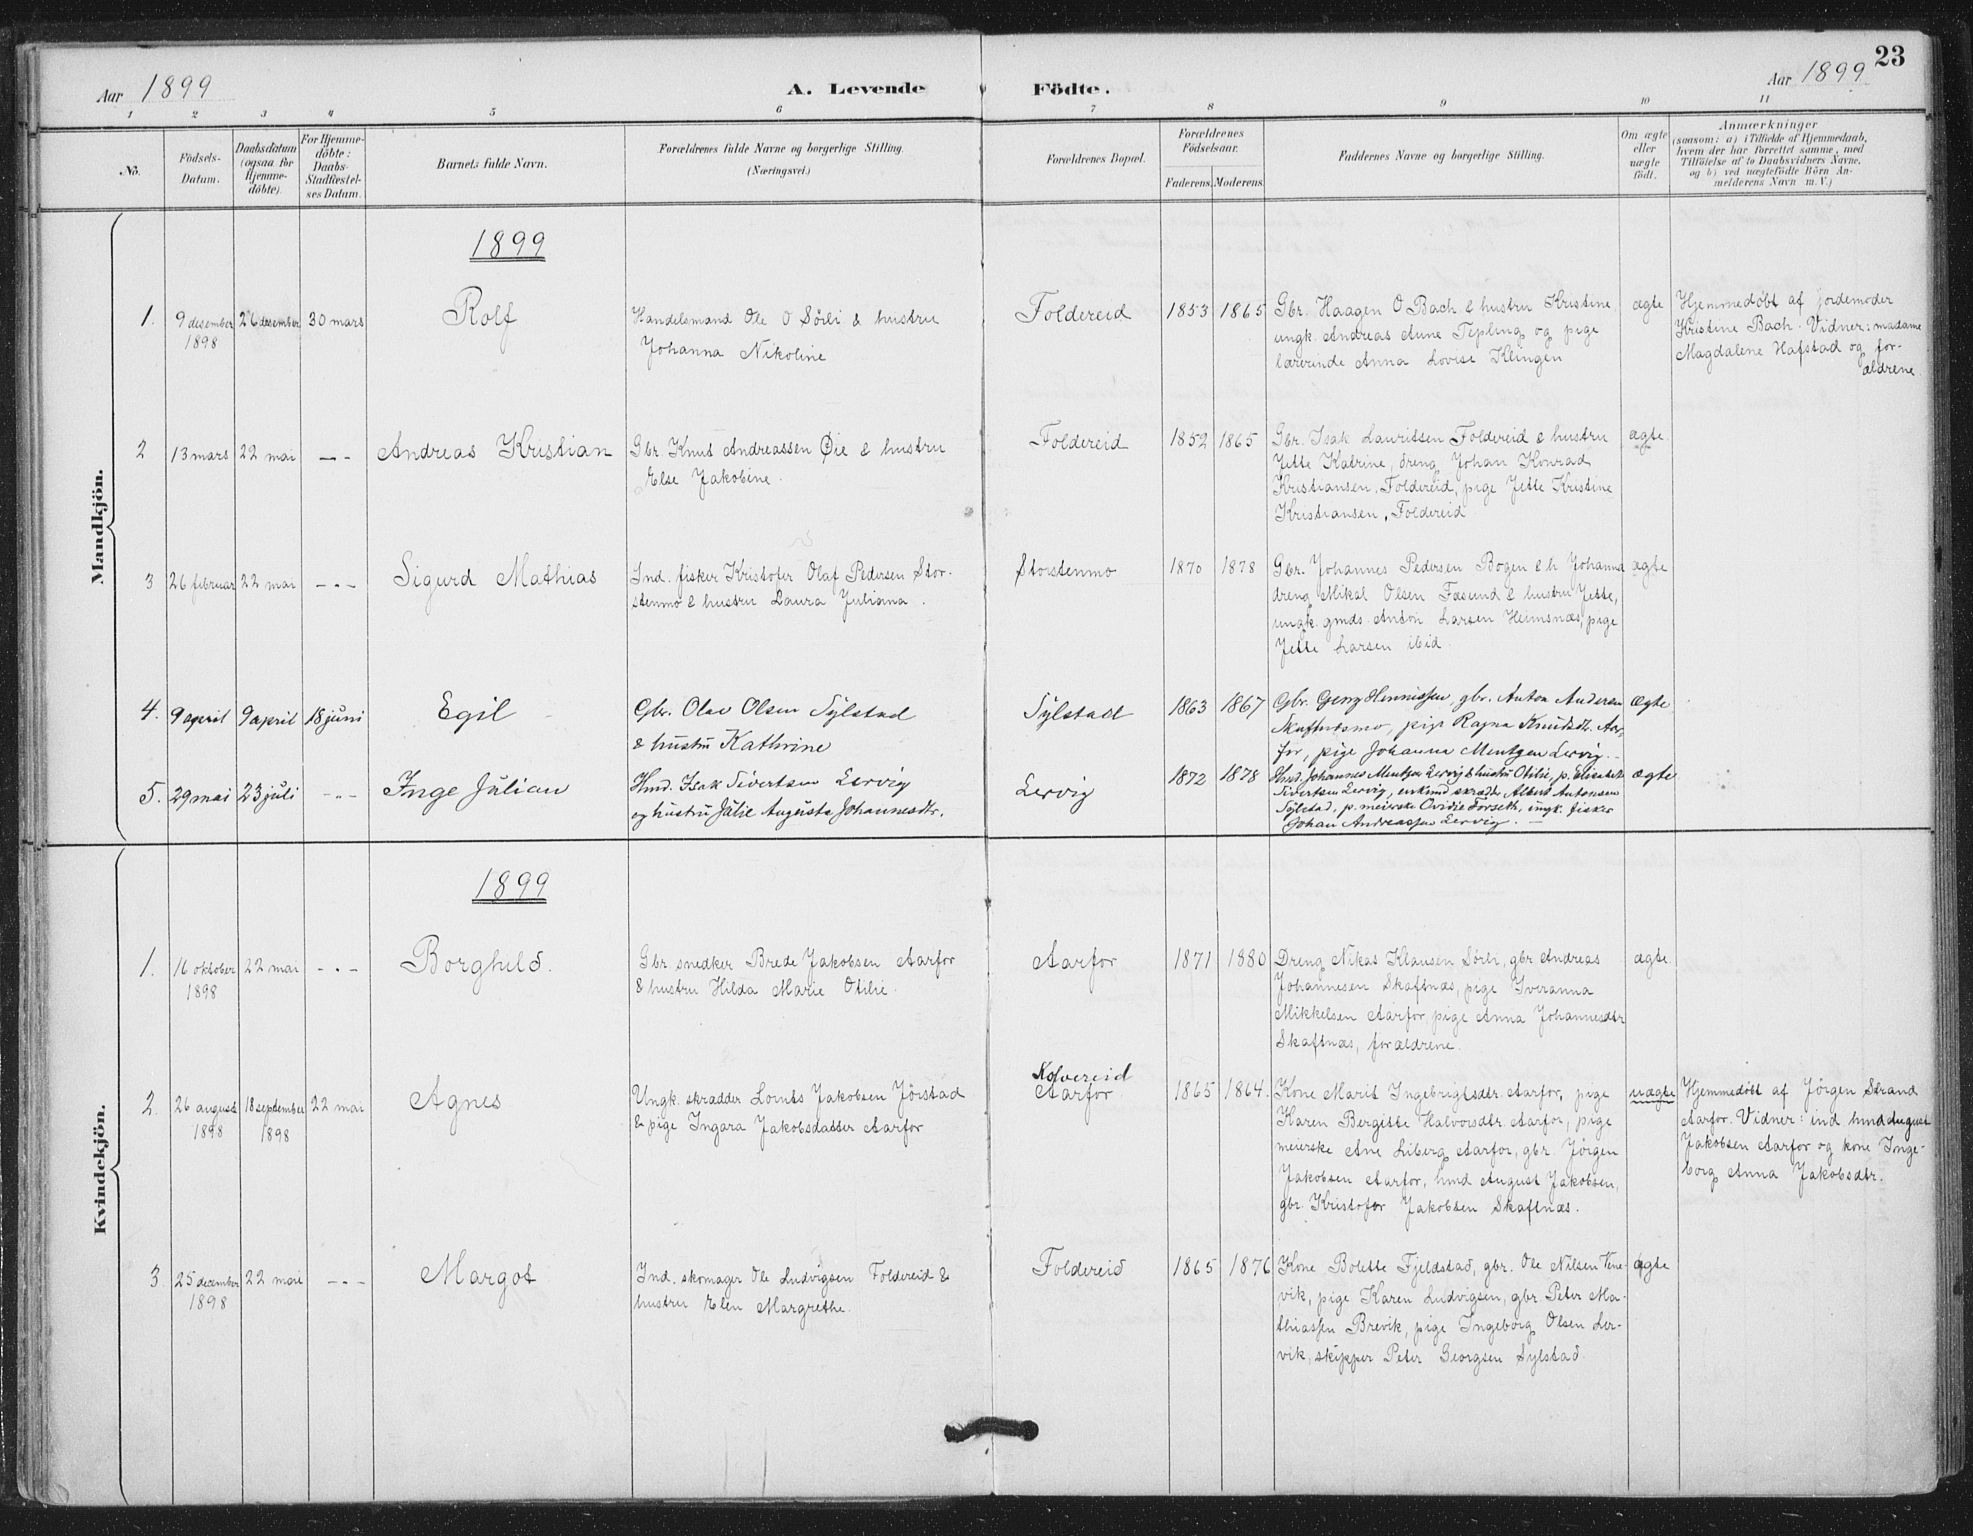 23
Aar 1899
A. Levende Födte.
Aar 1899
1 2 3 4 5 6 7 8 9 10 11
No.
Födsels-
Datum.
Daabsdatum
(ogsaa for
Hjemme-
döbte).
For Hjemme-
döbte:
Daabs-
Stadfæstel-
ses Datum.
Barnets fulde Navn.
Forældrenes fulde Navne og borgerlige Stilling.
(Næringsvei.)
Forældrenes Bopæl.
Forældrenes
Födselsaar.
Faderens. Moderens.
Faddernes Navne og borgerlige Stilling.
Om ægte
eller
uægte
födt.
Anmærkninger
(saasom: a) i Tilfælde af Hjemmedaab,
hvem der har forrettet samme, med
Tilföielse af to Daabsvidners Navne,
og b) ved uægtefödte Börn An-
melderens Navn m. V.)
Mandkjön.
1899
1. 9 desember 1898
26 desember
30 mars
Rolf
Handelsmand Ole O Sörli & hustru
Johanna Nikoline
Foldereid
1853 1865
Gbr. Haagen O Bach & hustru Kristine
ungk. Andreas Aune Tepling og pige
lærerinde Anna Lovise Klingen
ægte
Hjemmedöbt af jordemoder
Kristine Bach. Vidner: madame
Magdalene Hafstad og for-
ældrene.
2 13 mars
22 mai
— -
Andreas Kristian
Gbr. Knut Andreassen Øie & hustru
Else Jakobine.
Foldereid
1852 1865
Gbr. Isak Lauritsen Foldereid & hustru
Jette Katrine, dreng Johan Konrad
Kristiansen, Foldereid, pige Jette Kristine
Kristiansen, Foldereid
ægte
3 26 februar
22 mai
- - -
Sigurd Mathias
Ind. fisker Kristofer Olaf Pedersen Stor-
stenmo & hustru Laura Juliana.
Storstenmo
1870 1878
Gbr. Johannes Pedersen Bogen & h Johanna
dreng Mikal Olsen Fasund & hustru Jette,
ungk. gmds. Anton Larsen Heimsnæs, pige
Jette Larsen ibid.
ægte
4. 9 april
9 april
18 juni
Egil
Gbr. Olav Olsen Sylstad
& hustru Kathrine
Sylstad
1863 1867
Gbr. Georg Hennissen, gbr. Anton Andersen
Skaftnesmo, pige Ragna Knudsdtr. Aar-
for, pige Johanna Mentzen Lervig.
ægte
5. 29 mai
23 juli
- - -
Inge Julian
Hmd. Isak Sivertsen Lervig
og hustru Julie Augusta Johannesdtr.
Lervig
1872 1878
Hmd. Johannes Mentzen Lervig & hustru Otilie, p. Elisabeth
Sivertsen Lervig, enkemd skrædder Albert Antonsen
Sylstad, p. meierske Ovidie Forseth, ungk. fisker
Johan Andreassen Lervig. —
ægte
Kvindekjön.
1899
1. 16 oktober 1898
22 mai
- - -
Borghild.
Gbr snedker Brede Jakobsen Aarfor
& hustru Hilda Marie Otilie.
Aarfor
1871 1880
Dreng Nikas Klausen Sörli, gbr Andreas
Johannesen Skaftnæs, pige Iveranna
Mikkelsen Aarfor, pige Anna Johannesdtr
Skaftnæs, forældrene.
ægte
2. 26 august 1898
18 september 1898
22 mai
Agnes
Ungk. skrædder Lornts Jakobsen Jörstad
& pige Ingara Jakobsdatter Aarfor
Kolvereid
Aarfor
1865 1864.
Kone Marit Ingebrigtsdtr. Aarfor, pige
Karen Bergitte Halvorsdtr. Aarfor, pige
meierske Ane Liberg Aarfor, gbr. Jörgen
Jakobsen Aarfor, hmd August Jakobsen,
gbr. Kristofer Jakobsen Skaftnæs.
uægte
Hjemmedöbt af Jörgen Strand
Aarfor. Vidner: ind. hmd August
Jakobsen Aarfor og kone Inge-
borg Anna Jakobsdtr.
3. 25 december 1898
22 mai
- - -
Margot
Ind. skomager Ole Ludvigsen Foldereid &
hustru Elen Margrethe.
Foldereid
1865 1876
Kone Bolette Fjeldstad, gbr. Ole Nilsen Vene-
vik, pige Karen Ludvigsen, gbr Peter Ma-
thiassen Brevik, pige Ingeborg Olsen Ler-
vik, skipper Peter Georgsen Sylstad.
ægte